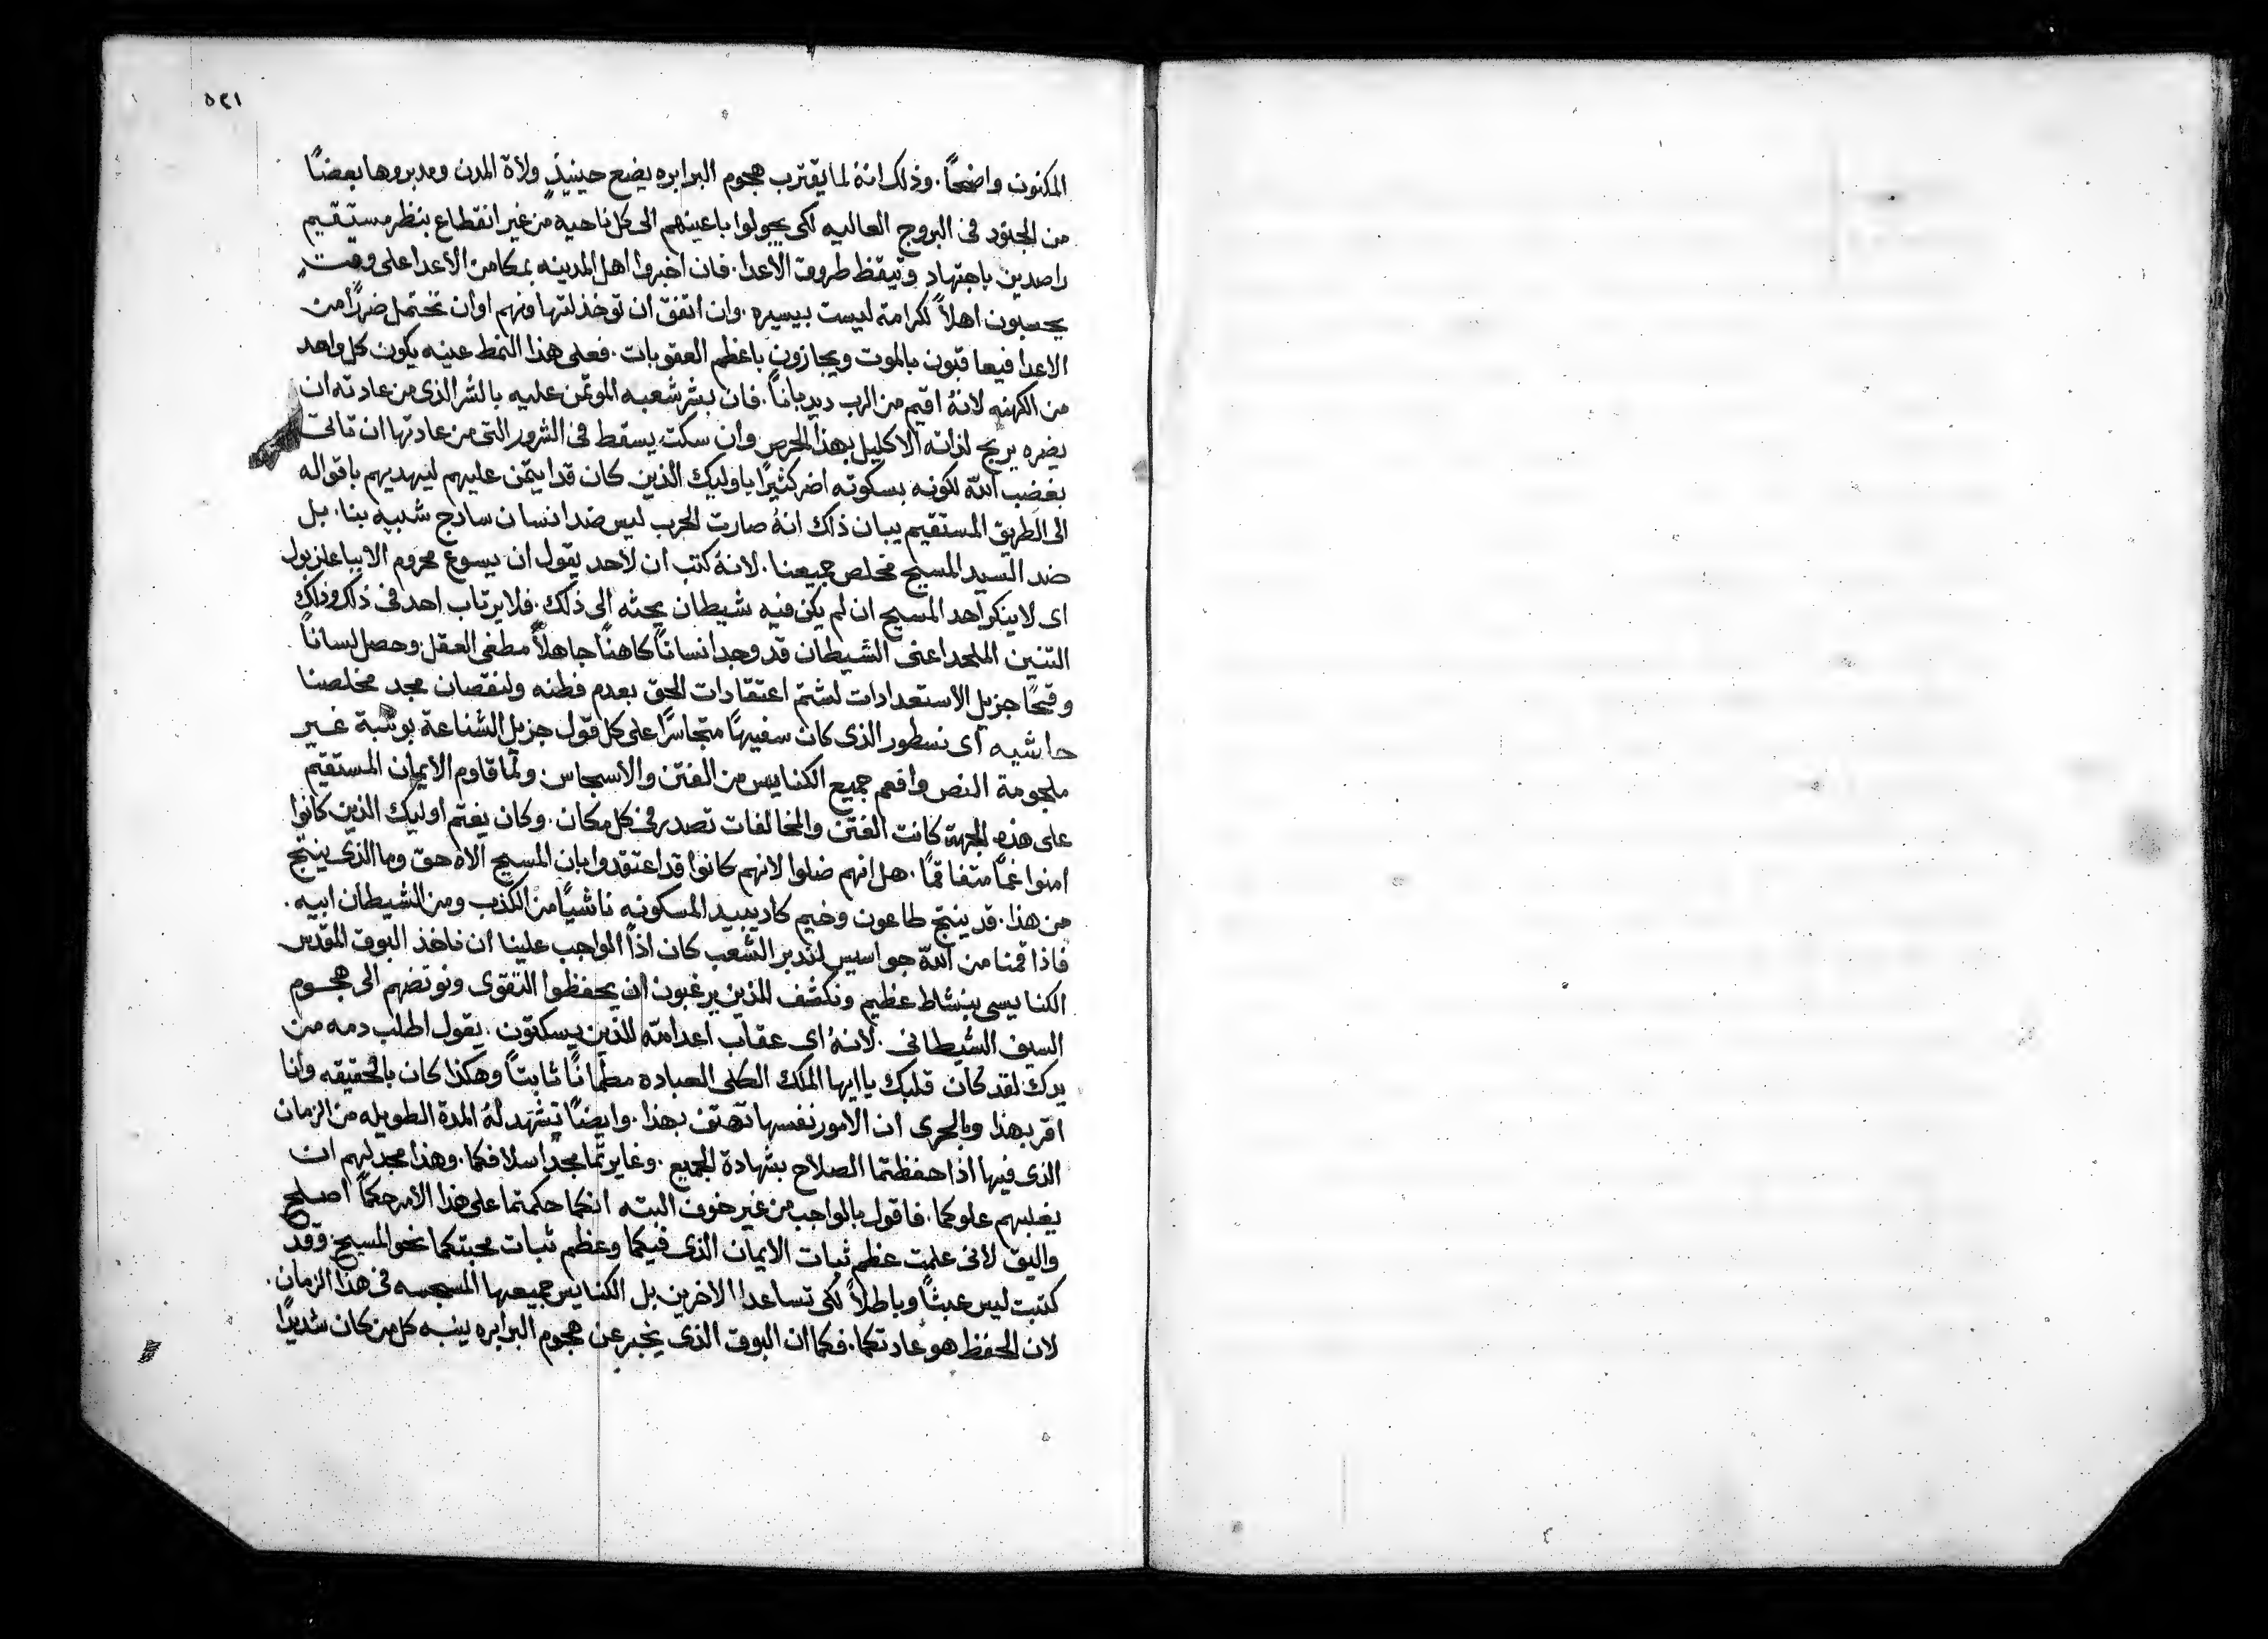 ٥٢١
المكنون واضحًا. وذلك انهُ لما يقترب هجوم البرابره يضع حينيذٍ ولاة المدن ومدبروها بعضًا
من الجنود فى البروج العاليه لكى يجولوا باعينهم الى كل ناحيه من غير انقطاع بنظر مستقيم
راصدين باجتهاد وتيقظ طروق الأعدا. فان اخبروا اهل المدينه بمكامن الأعدا على وقتٍ
يحسبون اهلاً لكرامة ليست بيسيره. وان اتفق ان توخذ لتهاونهم او ان تحتمل ضررًا من
الاعدا فيعاقبون بالموت ويجازون باعظم العقوبات. فعلى هذا النمط عينه يكون كل واحد
من الكهنه لانهُ اقيم من الرب ديدبانًا. فان بشر شعبه الموتمن عليه بالشر الذى من عادته ان
يضره يربح لذاته الاكليل بهذا الحرص وان سكت يسقط فى الشرور التى من عادتها ان تاتى
بغضب الله لكونه بسكوته اضر كثيرًا باوليك الذين كان قد ايتمن عليهم ليهديهم باقواله
الى الطريق المستقيم بيان ذاك انهُ صارت الحرب ليس ضد انسان سادج شبيه بنا. بل
ضد السيد المسيح مخلص جميعنا. لانهُ كتب ان لاحد يقول ان يسوع محروم الا بباعلزبول
اى لا ينكر احد المسيح ان لم يكن فيه شيطان يحثه الى ذلك. فلا يرتاب احد فى ذلك وذلك
التنين الملحد اعنى الشيطان قد وجد انسانًا كاهنًا جاهلاً مطفى العقل وحصل لسانًا
وقحًا جزيل الاستعدادات لشتم اعتقادات الحق بعدم فطنه ولنقصان مجد مخلصنا
حاشيه اى نسطور الذى كان سفيهًا متجاسرًا على كل قول جزيل الشناعة بوثبة غير
ملجومة النص وافعم جميع الكنايس من الفتن والاسجاس ولما قاوم الايمان المستقيم
على هذه الجهة كانت الفتن والمخالفات تصدر فى كل مكان. وكان يغتم اوليك الذين كانوا
امنوا غمًا متفاقمًا. هل انهم ضلوا لانهم كانوا قد اعتقدوا بان المسيح الاه حق وما الذى ينتج
من هذا. قد ينتج طاعون وخيم كاد يبيد المسكونه ناشيًا من الكذب ومن الشيطان ابيه.
فاذا قمنا من الله جواسيس لندبر الشعب كان اذًا الواجب علينا ان ناخذ البوق المقدس
الكنايسى بنشاط عظيم ونكشف للذين يرغبون ان يحفظوا التقوى ونوقضهم الى هجوم
السيف الشيطانى. لانهُ اى عقاب اعد الله للذين يسكتون. يقول اطلب دمه من
يدك لقد كان قلبك يا ايها الملك الكلى العباده مطمانًا ثابتًا وهكذا كان بالحقيقه وانا
اقر بهذا وبالحرى ان الامور نفسها تهتف بهذا. وايضًا تشهد لهُ المدة الطويله من الزمان
الذى فيها اذا حفظتما الصلاح بشهادة الجميع. وغايرتما مجد اسلافكما. وهذا مجد لهم ان
يغلبهم علوكما. فاقول بالواجب من غير خوف البته انكما حكمتما على هذا الأمر حكمًا اصلح
واليق لانى علمت عظم ثبات الايمان الذى فيكما وعظم ثبات محبتكما نحو المسيح. وقد
كتبت ليس عبثًا وباطلاً لكى تساعدا الاخرين بل الكنايس جميعها المسجسه فى هذا الزمان.
لان الحفظ هو عادتكما. فكما ان البوق الذى يخبر عن هجوم البرابره ينبه كل من كان شديدًا